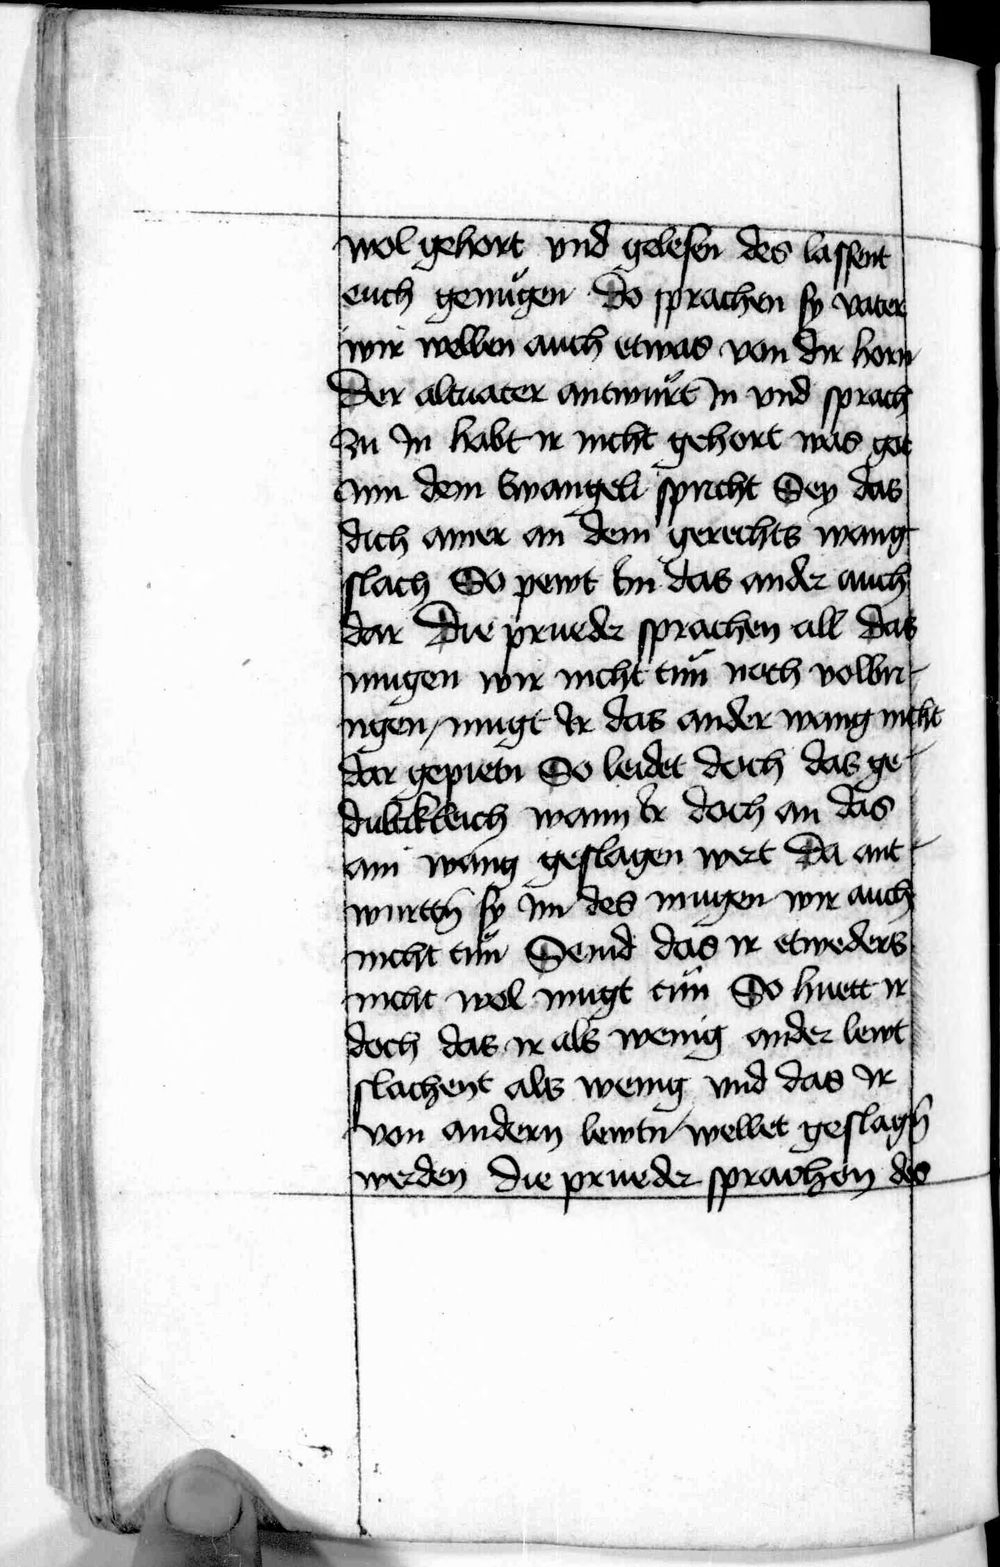 wol gehort vnd gelesen des lassent
euch genuͤgen Do sprachen sy vater
wir wellen auch etwas von dir horn
Der altuater antwuͦrt In vnd sprach
zu In habt ir nicht gehort was got
inn dem Ewangeli spricht Sey das
dich ainer an dem gerechts wang
slach So pewt im das ander auch
dar Die prueder sprachen all Das
mugen wir nicht tuͦn noch volbri-
ngen / mugt Ir das ander wang nicht
dar gepietn So leidet doch das ge-
dultickleich wann Ir doch an das
ain wang geslagen wert Da ant-
wurttn̄ sy Im des mugen wir auch
nicht tuͦn Seind das ir etweders
nicht wol mugt tuͦn So huett ir
doch das ir als wenig ander lewt
slachent als wenig vnd das Ir
von andern lewtn / wellet geslagn̄
werden Die prueder sprachen des